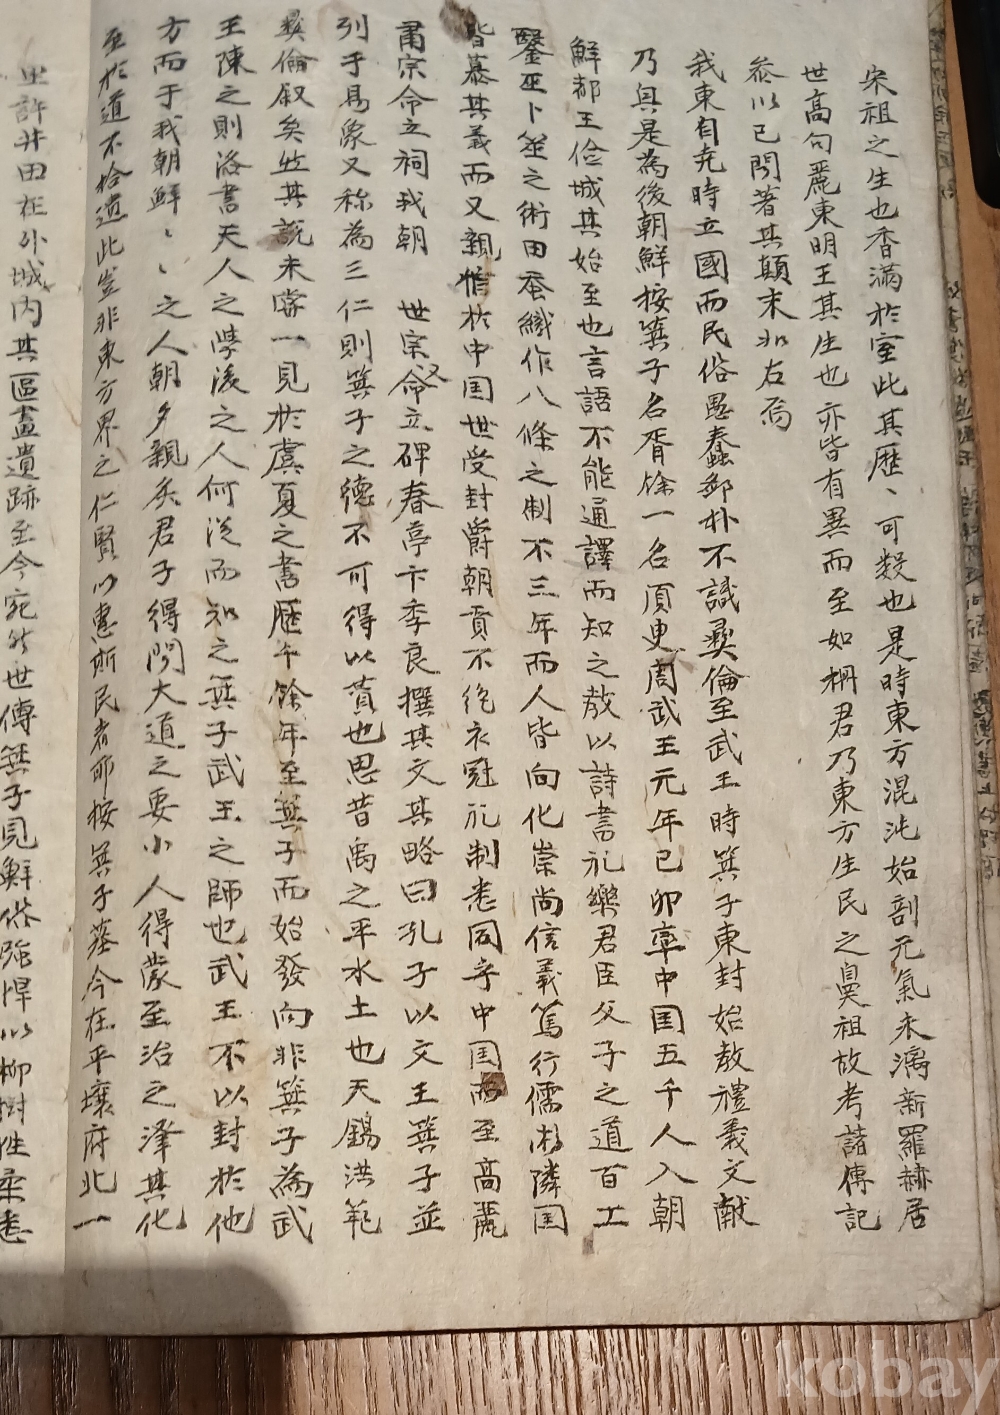 宋祖之生也香滿於室此其歷〻可数也是時東方混沌始剖元氣未漓新羅赫居
世高句麗東明王其生也亦皆有異而至如檀君乃東方生民之鼻祖故考諸傳記
參以已聞著其顛末如右焉
我東自尭時立國而民俗愚蠢鄙朴不識彛倫至武王時箕子東封始敎禮義文獻
乃興是為後朝鮮按箕子名胥餘一名須臾周武王元年己卯率中国五千人入朝
鮮都王俭城其始至也言語不能通譯而知之敎以詩書礼樂君臣父子之道百工
毉巫卜筮之術田蚕織作八條之制不三年而人皆向化崇尚信義篤行儒術隣国
皆慕其義而又親惟於中国世受封爵朝貢不絶衣冠礼制悉同乎中国而至高麗
肅宗命立祠我朝 世宗又命立碑春亭卞季良撰其文其略曰孔子以文王箕子並
列于易象又称為三仁則箕子之德不可得以賛也思昔禹之平水土也天錫洪範
彛倫叙矣此其説未嘗一見於虞夏之書歴千餘年至箕子而始發向非箕子為武
王陳之則洛書天人之學後之人何從而知之箕子武王之師也武王不以封於他
方而于我朝鮮〻〻之人朝夕親炙君子得聞大道之要小人得蒙至治之澤其化
至於道不拾遺此豈非東方界之仁賢以惠斯民者耶按箕子墓今在平壤府北一
里許井田在外城内其區畫遺跡至今宛然世傳箕子見鮮俗强悍以柳樹性柔悉
kobay